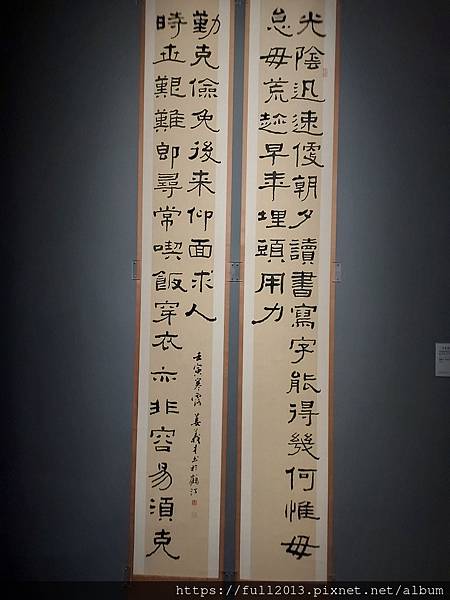 光陰迅速朝夕讀書寫字能得幾何惟毋
怠毋荒趁早年埋頭用力
時世艱難即尋常喫飯穿衣亦非容易須克
勤克儉免後来仰面求人
壬寅寒露 姜義才书於鶴江
https://full2013.pixnet.net/album